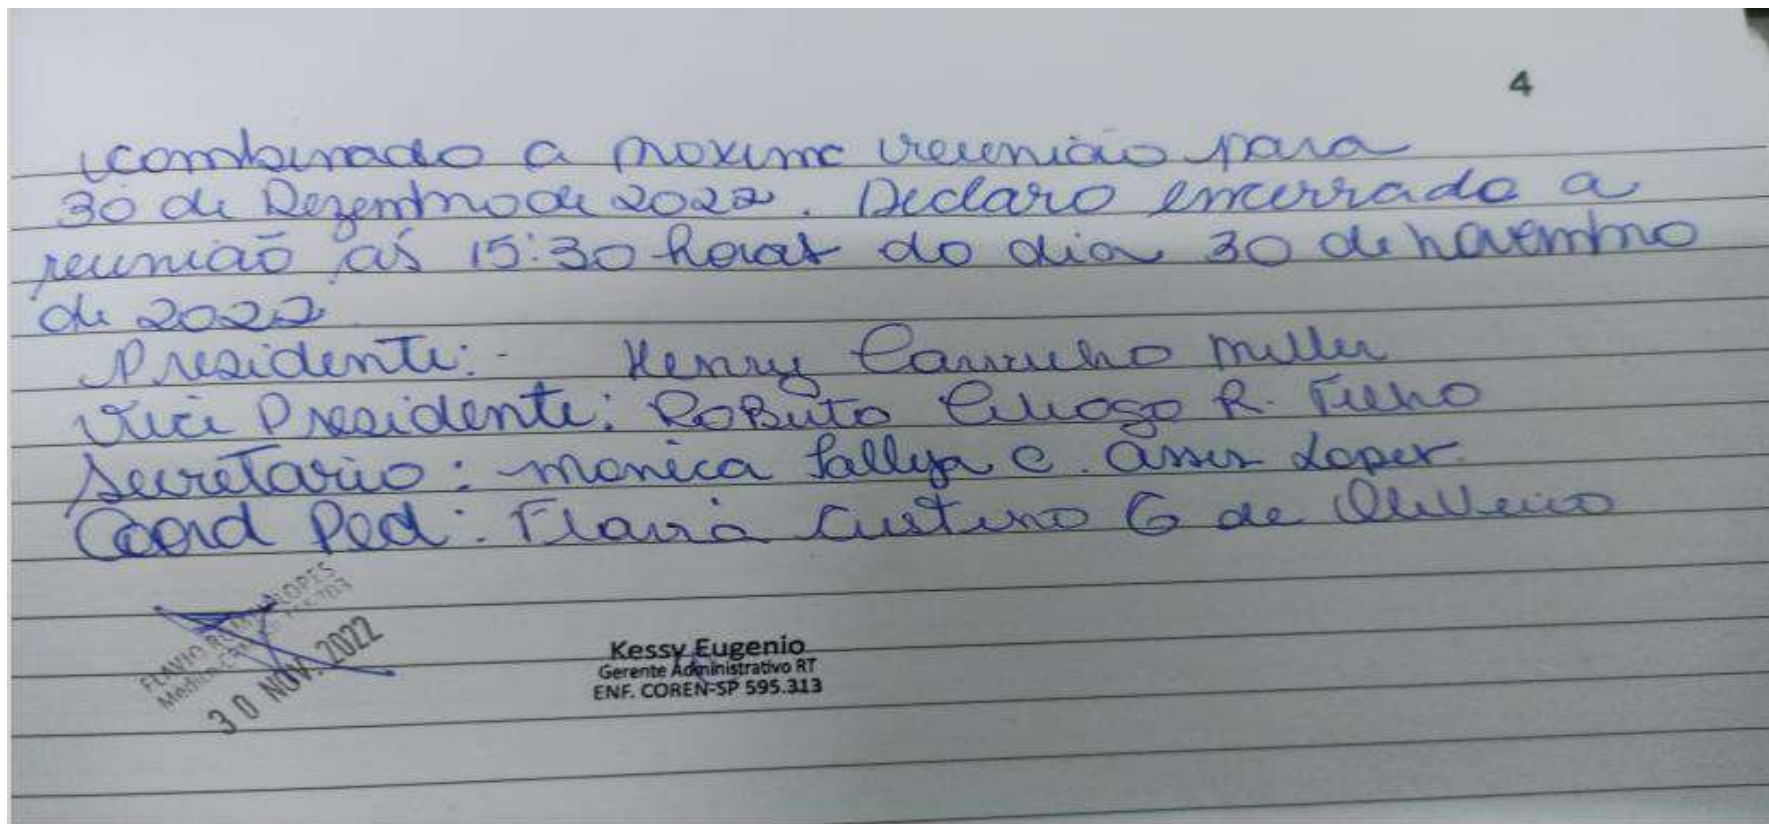 4
combinado a proxima reunião para
30 de Dezembro de 2022. Declaro encerrada a
reunião ás 15:30 horas do dia 30 de novembro
de 2022
Presidente: - Henry Carrilho Miller
Vice Presidente: Roberto R. Filho
Secretario: monica Sallya C. Assis Lopes
Coord Ped: Flavia Custino G de Oliveira
FLAVIO LOPES
30 NOV. 2022
Kessy Eugenio
Gerente Administrativo RT
ENF. COREN-SP 595.313